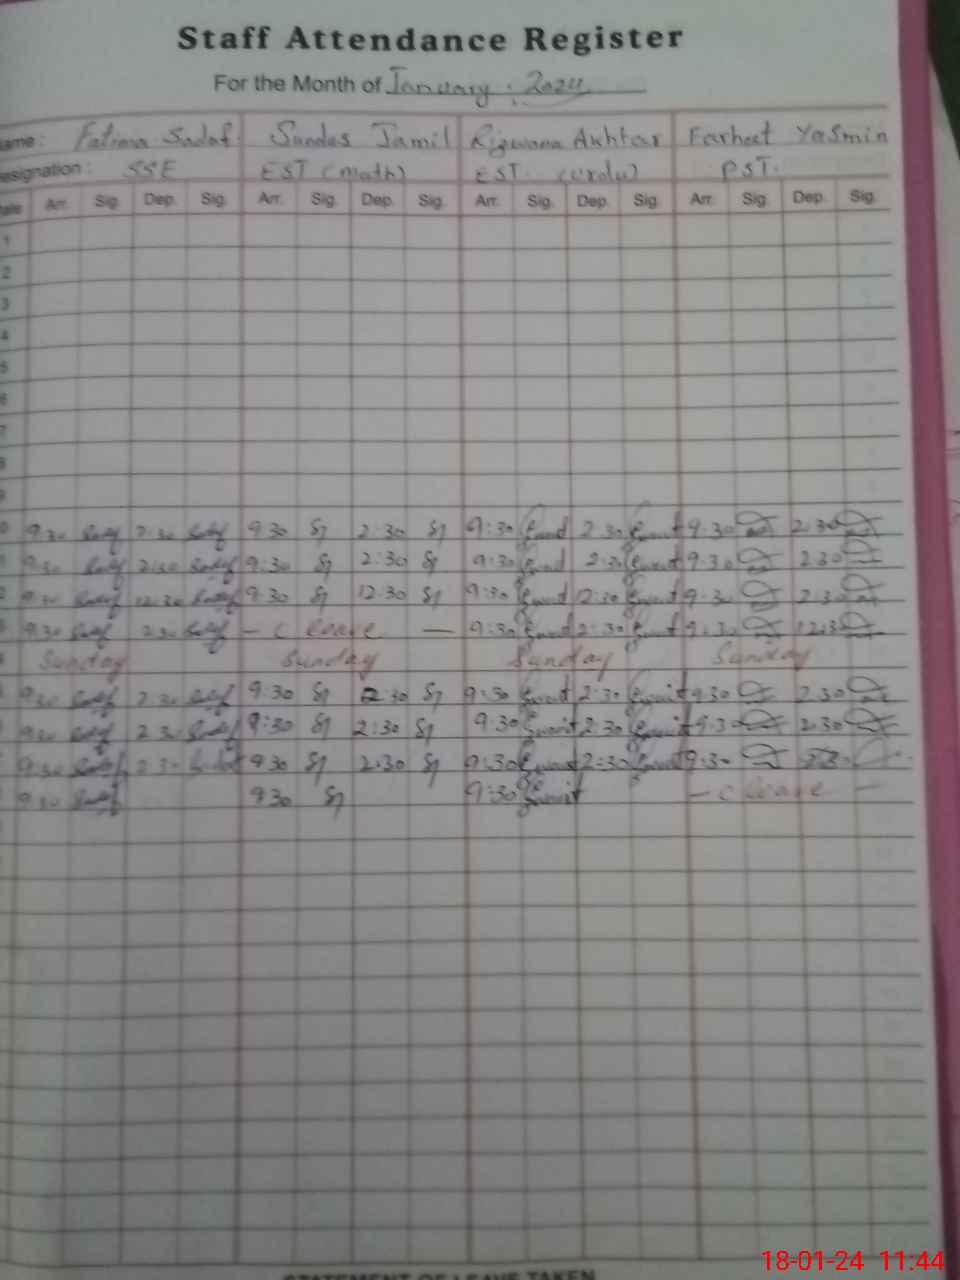 Staff Attendance Register
For the Month of January. 2024
ame: Fatima Sadaf Sundas Jamil Rizwana Akhtar Farheet Yasmin
esignation: SSE EST (math) EST. (urdu) PST.
ate Arr. Sig. Dep. Sig. Arr. Sig. Dep. Sig. Arr. Sig. Dep. Sig. Arr. Sig. Dep. Sig.
1
2
3
4
5
6
7
8
9
0 9.30 Sadaf 2.30 Sadaf 9.30 SJ 2.30 SJ 9:30 2.30 9.30 2.30
9.30 Sadaf 2.30 Sadaf 9:30 SJ 2:30 SJ 9:30 2:30 9.30 2.30
2 9.30 Sadaf 12.30 Sadaf 9.30 SJ 12.30 SJ 9:30 12:30 9.30 2.30
3 9.30 Sadaf 2.30 Sadaf – C leave – 9:30 2:30 9:30 12.30
Sunday Sunday Sunday Sunday
9.30 Sadaf 2.30 Sadaf 9:30 SJ 2:30 SJ 9:30 2:30 9.30 2.30
9.30 Sadaf 2.30 Sadaf 9:30 SJ 2:30 SJ 9.30 2:30 9.30 2.30
9.30 Sadaf 2.30 Sadaf 9.30 SJ 2.30 SJ 9:30 2:30 9.30
9.30 Sadaf 9.30 SJ 9:30 – C leave –
STATEMENT OF LEAVE TAKEN
18-01-24 11:44